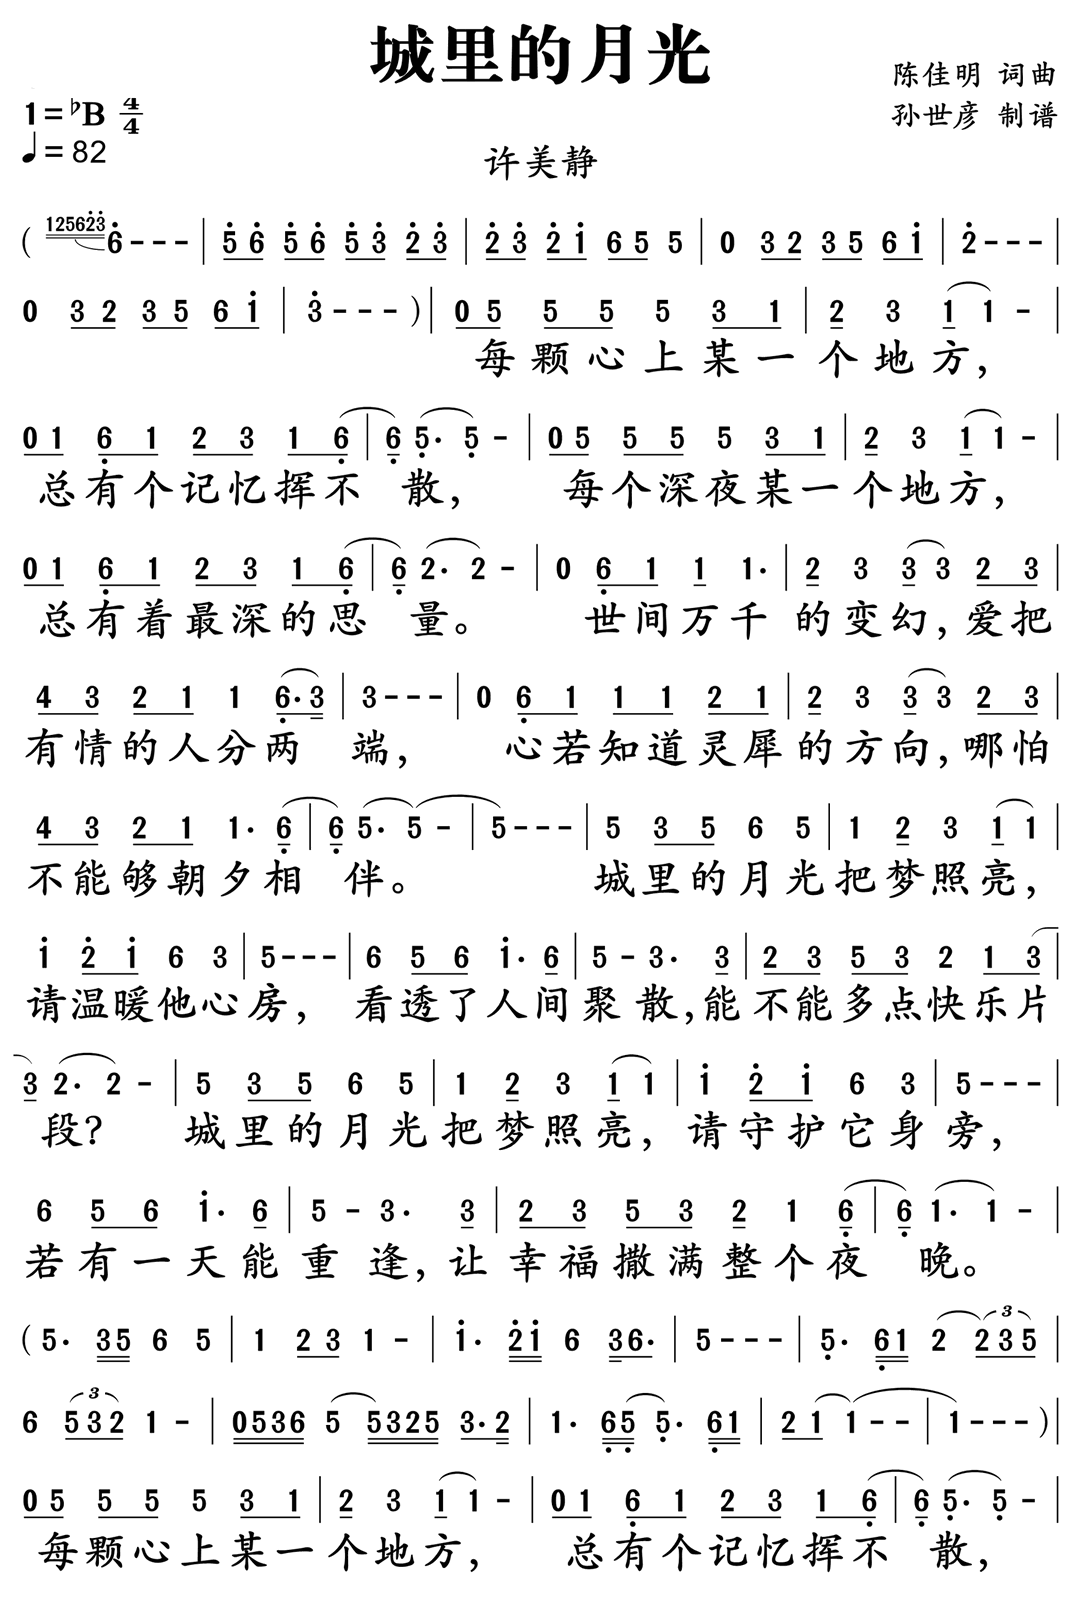 城里的月光
陈佳明 词曲
1=♭B 4/4
孙世彦 制谱
♩=82
许美静
( 125623 6 - - - | 5 6 5 6 5 3 2 3 | 2 3 2 1 6 5 5 | 0 3 2 3 5 6 1 | 2 - - - |
0 3 2 3 5 6 1 | 3 - - - ) | 0 5 5 5 5 3 1 | 2 3 1 1 - |
每颗心上某一个地方，
0 1 6 1 2 3 1 6 | 6 5· 5 - | 0 5 5 5 5 3 1 | 2 3 1 1 - |
总有个记忆挥不 散， 每个深夜某一个地方，
0 1 6 1 2 3 1 6 | 6 2· 2 - | 0 6 1 1 1· | 2 3 3 3 2 3 |
总有着最深的思 量。 世间万千 的变幻，爱把
4 3 2 1 1 6·3 | 3 - - - | 0 6 1 1 1 2 1 | 2 3 3 3 2 3 |
有情的人分两 端， 心若知道灵犀的方向，哪怕
4 3 2 1 1· 6 | 6 5· 5 - | 5 - - - | 5 3 5 6 5 | 1 2 3 1 1 |
不能够朝夕相 伴。 城里的月光把梦照亮，
1 2 1 6 3 | 5 - - - | 6 5 6 1· 6 | 5 - 3· 3 | 2 3 5 3 2 1 3 |
请温暖他心房， 看透了人间聚散，能不能多点快乐片
3 2· 2 - | 5 3 5 6 5 | 1 2 3 1 1 | 1 2 1 6 3 | 5 - - - |
段？ 城里的月光把梦照亮，请守护它身旁，
6 5 6 1· 6 | 5 - 3· 3 | 2 3 5 3 2 1 6 | 6 1· 1 - |
若有一天能重逢，让幸福撒满整个夜 晚。
( 5· 35 6 5 | 1 2 3 1 - | 1· 21 6 36· | 5 - - - | 5· 61 2 235 |
6 532 1 - | 0536 5 5325 3·2 | 1· 65 5· 61 | 21 1 - - | 1 - - - ) |
0 5 5 5 5 3 1 | 2 3 1 1 - | 0 1 6 1 2 3 1 6 | 6 5· 5 - |
每颗心上某一个地方， 总有个记忆挥不 散，